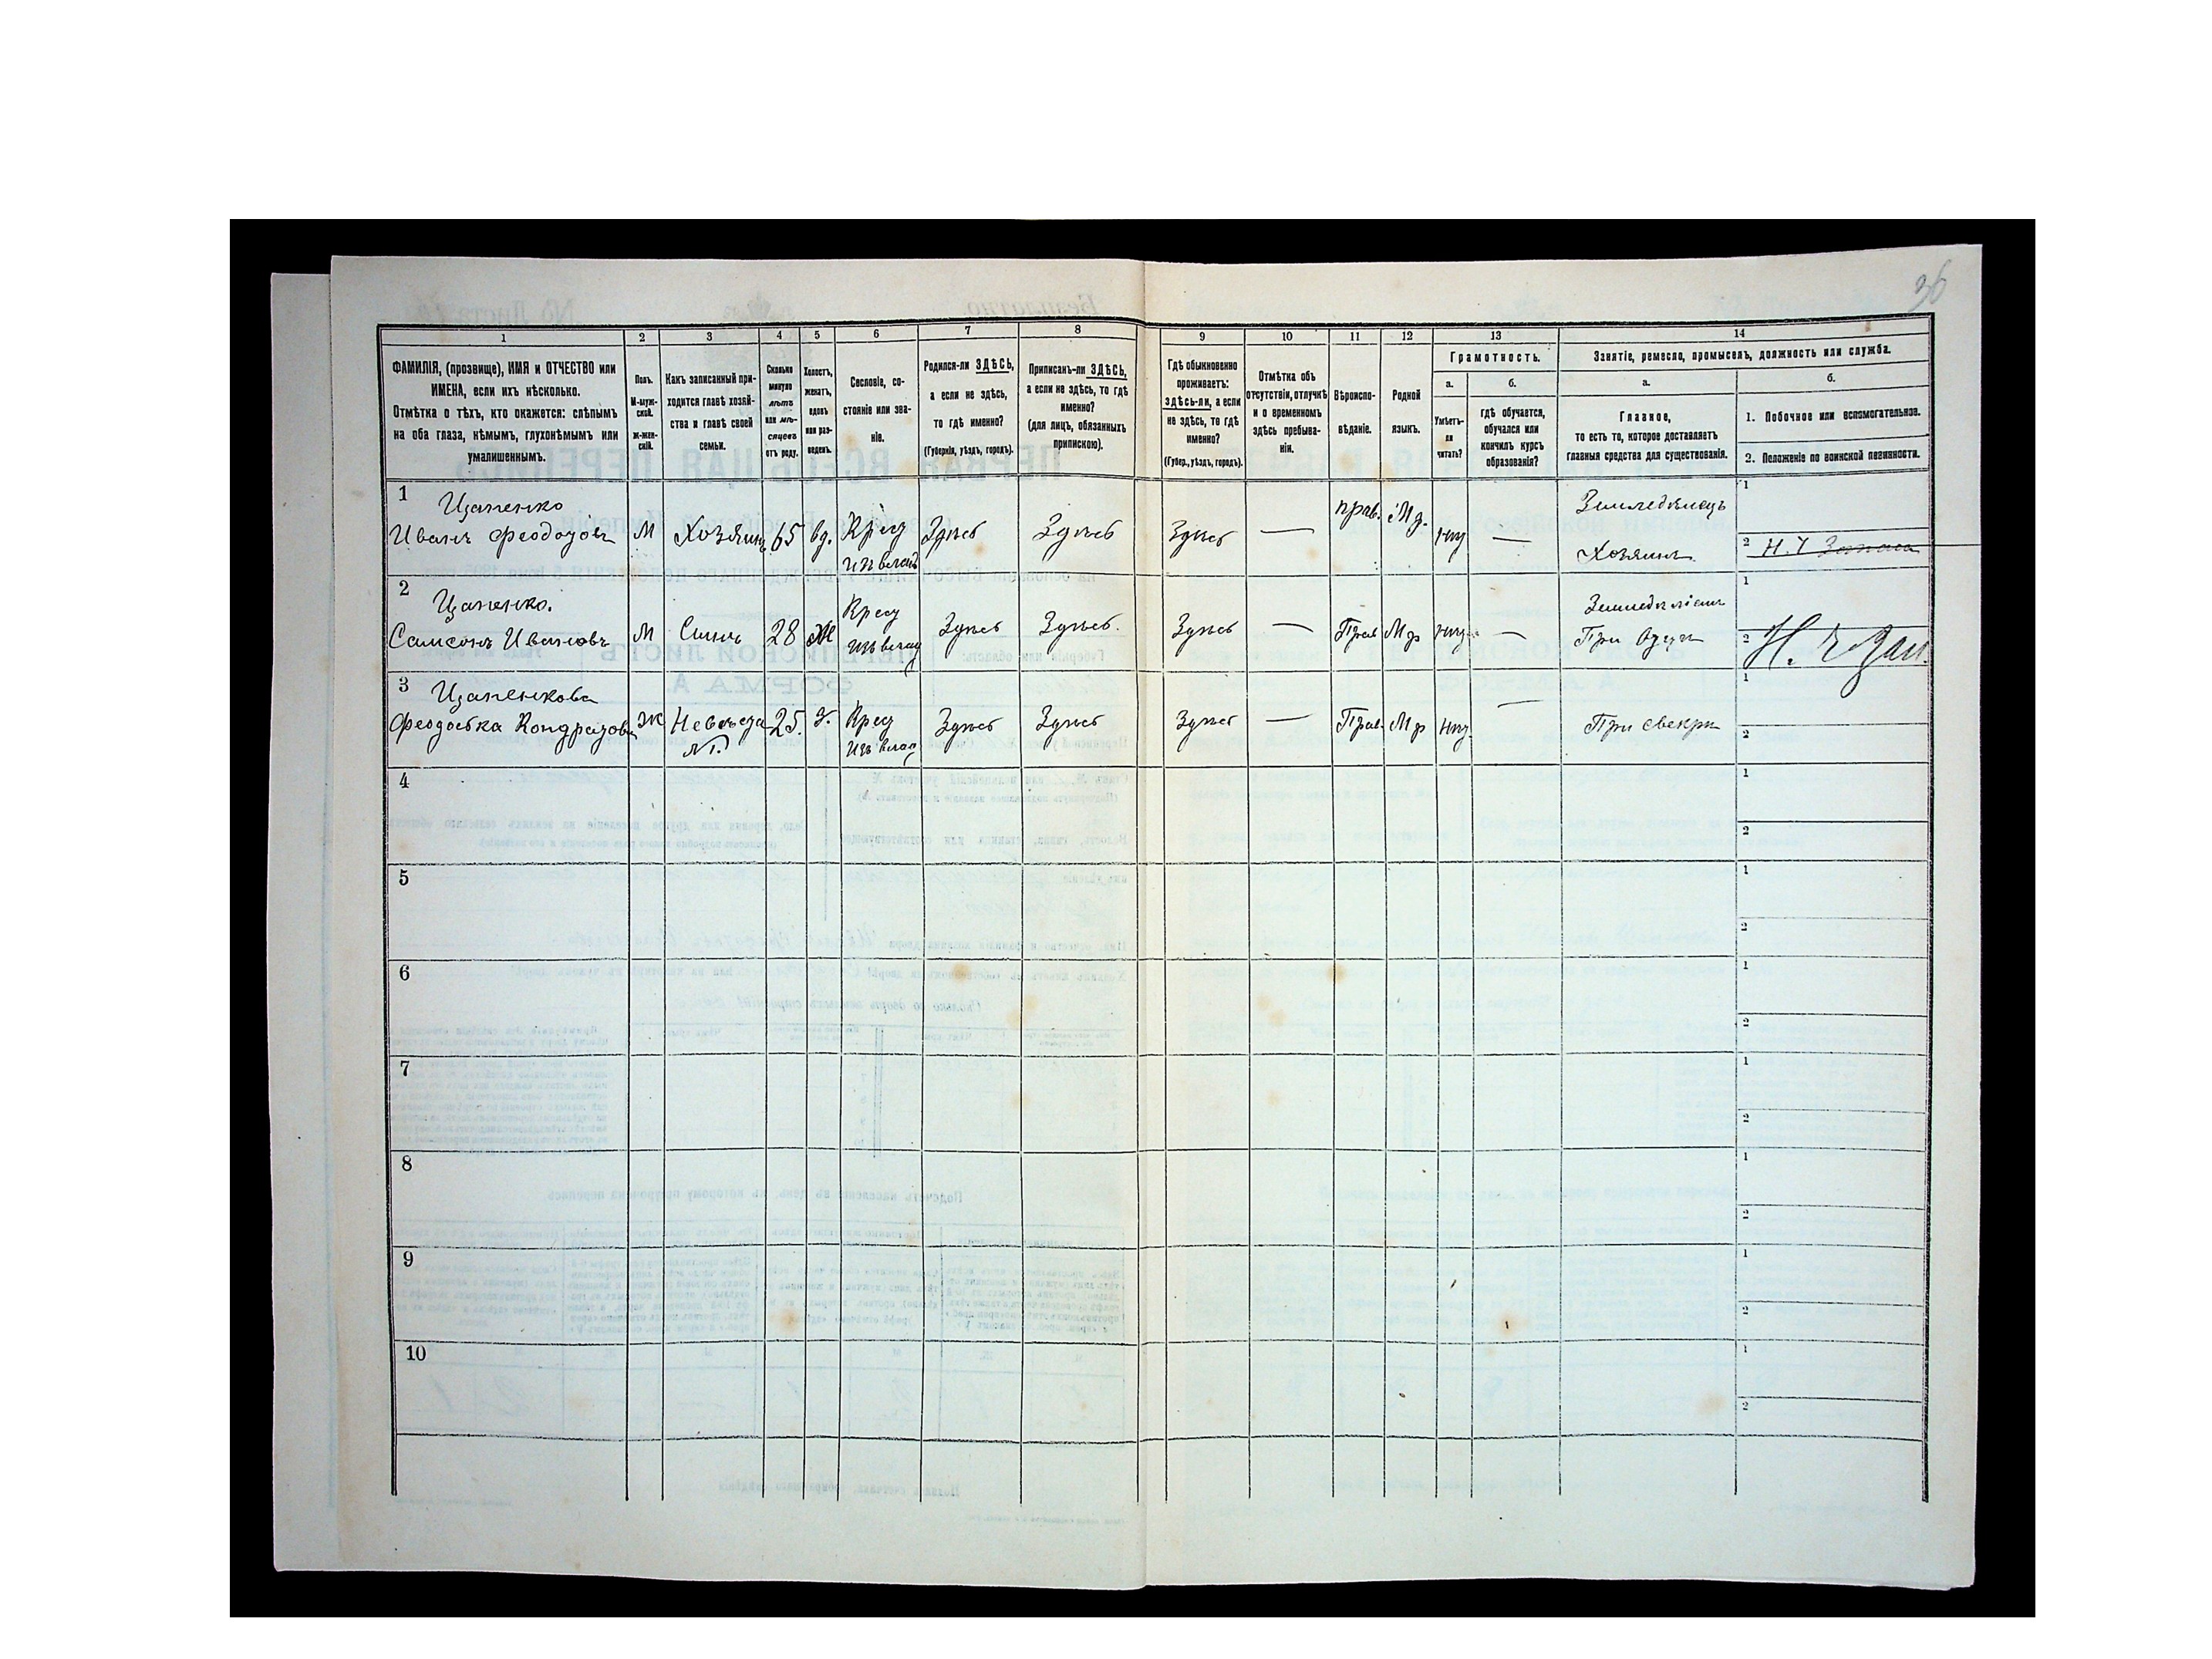 36
1
2
3
4
5
6
7
8
9
10
11
12
13
14
ФАМИЛІЯ, (прозвище), ИМЯ и ОТЧЕСТВО или
ИМЕНА, если ихъ нѣсколько.
Отмѣтка о тѣхъ, кто окажется: слѣпымъ
на оба глаза, нѣмымъ, глухонѣмымъ или
умалишеннымъ.
Полъ.
М-муж-
ской.
Ж-жен-
скій.
Какъ записанный при-
ходится главѣ хозяй-
ства и главѣ своей
семьи.
Сколько
минуло
лѣтъ
или мѣ-
сяцевъ
отъ роду.
Холостъ,
женатъ,
вдовъ
или раз-
веденъ.
Сословіе, со-
стояніе или зва-
ніе.
Родился-ли ЗДѢСЬ,
а если не здѣсь,
то гдѣ именно?
(Губернія, уѣздъ, городъ).
Приписанъ-ли ЗДѢСЬ,
а если не здѣсь, то гдѣ
именно?
(для лицъ, обязанныхъ
припискою).
Гдѣ обыкновенно
проживаетъ:
здѣсь-ли, а если
не здѣсь, то гдѣ
именно?
(Губер., уѣздъ, городъ).
Отмѣтка объ
отсутствіи, отлучкѣ
и о временномъ
здѣсь пребыва-
ніи.
Вѣроиспо-
вѣданіе.
Родной
языкъ.
Грамотность.
а.
Умѣетъ-
ли
читать?
б.
гдѣ обучается,
обучался или
кончилъ курсъ
образованія?
Занятіе, ремесло, промыселъ, должность или служба.
а.
Главное,
то есть то, которое доставляетъ
главныя средства для существованія.
б.
1. Побочное или вспомогательное.
2. Положеніе по воинской повинности.
1 Цапенко
Иванъ Феодоровъ М Хозяинъ 65 вд. Крест Здѣсь Здѣсь Здѣсь — прав. Мр. нѣт — Земледѣлецъ
изъ влад Хозяинъ
1
2 Н. Ч Запаса
2 Цапенко.
Самсонъ Ивановъ М Сынъ 28 Ж Крест Здѣсь Здѣсь. Здѣсь — Прав Мр нѣт —
изъ влад При Отцѣ
1
2 Н. Ч Зап.
3 Цапенкова
Феодосья Кондратова Ж Невѣстка 25. З. Крест Здѣсь Здѣсь Здѣсь — Прав. Мр нѣт — При свекрѣ
изъ влад
1
2
4
1
2
5
1
2
6
1
2
7
1
2
8
1
2
9
1
2
10
1
2